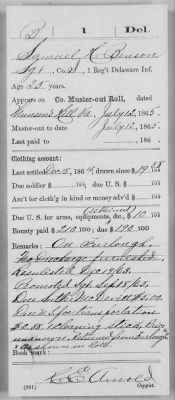 B | 1 | Del.
Samuel H. Benson
Sgt, Co. B, 1 Reg't Delaware Inf.
Age 25 years.
Appears on Co. Muster-out Roll, dated
Munson's Hill Va, July 12, 1865.
Muster-out to date July 12, 1865.
Last paid to , 186 .
Clothing account:
Last settled Dec 18, 1864; drawn since $ 19 58
Due soldier $ 100; due U. S. $ 100
Am't for cloth'g in kind or money adv'd $ 100
Due U. S. for arms, equipments, &c., $ 10 100
(retained)
Bounty paid $ 210 100; due $ 190 100
Remarks: On Furlough.
No Discharge furnished.
Reenlisted Dec 19/63.
Promoted Sgt. Sept 18/63.
Due
Due U.S. for transportation
Returned from Furlough
as shown on Roll.
Book mark:
C. E. Arnold
(861) Copyist.